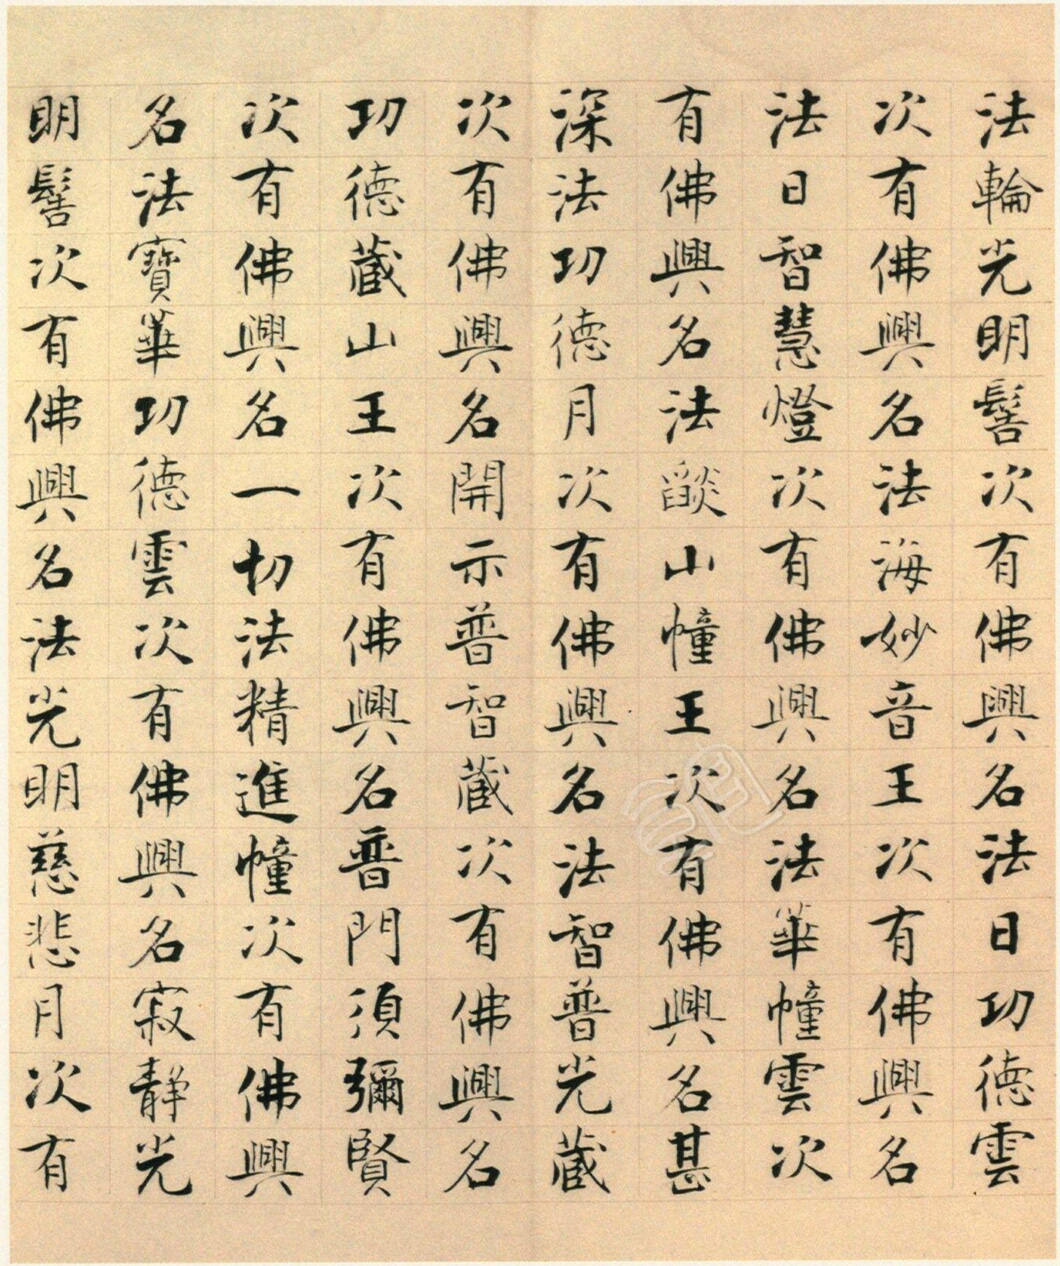 法輪光明髻次有佛興名法日功德雲
次有佛興名法海妙音王次有佛興名
法日智慧燈次有佛興名法華幢雲次
有佛興名法燄山幢王次有佛興名甚
深法功德月次有佛興名法智普光藏
次有佛興名開示普智藏次有佛興名
功德藏山王次有佛興名普門須彌賢
次有佛興名一切法精進幢次有佛興
名法寶華功德雲次有佛興名寂靜光
明髻次有佛興名法光明慈悲月次有